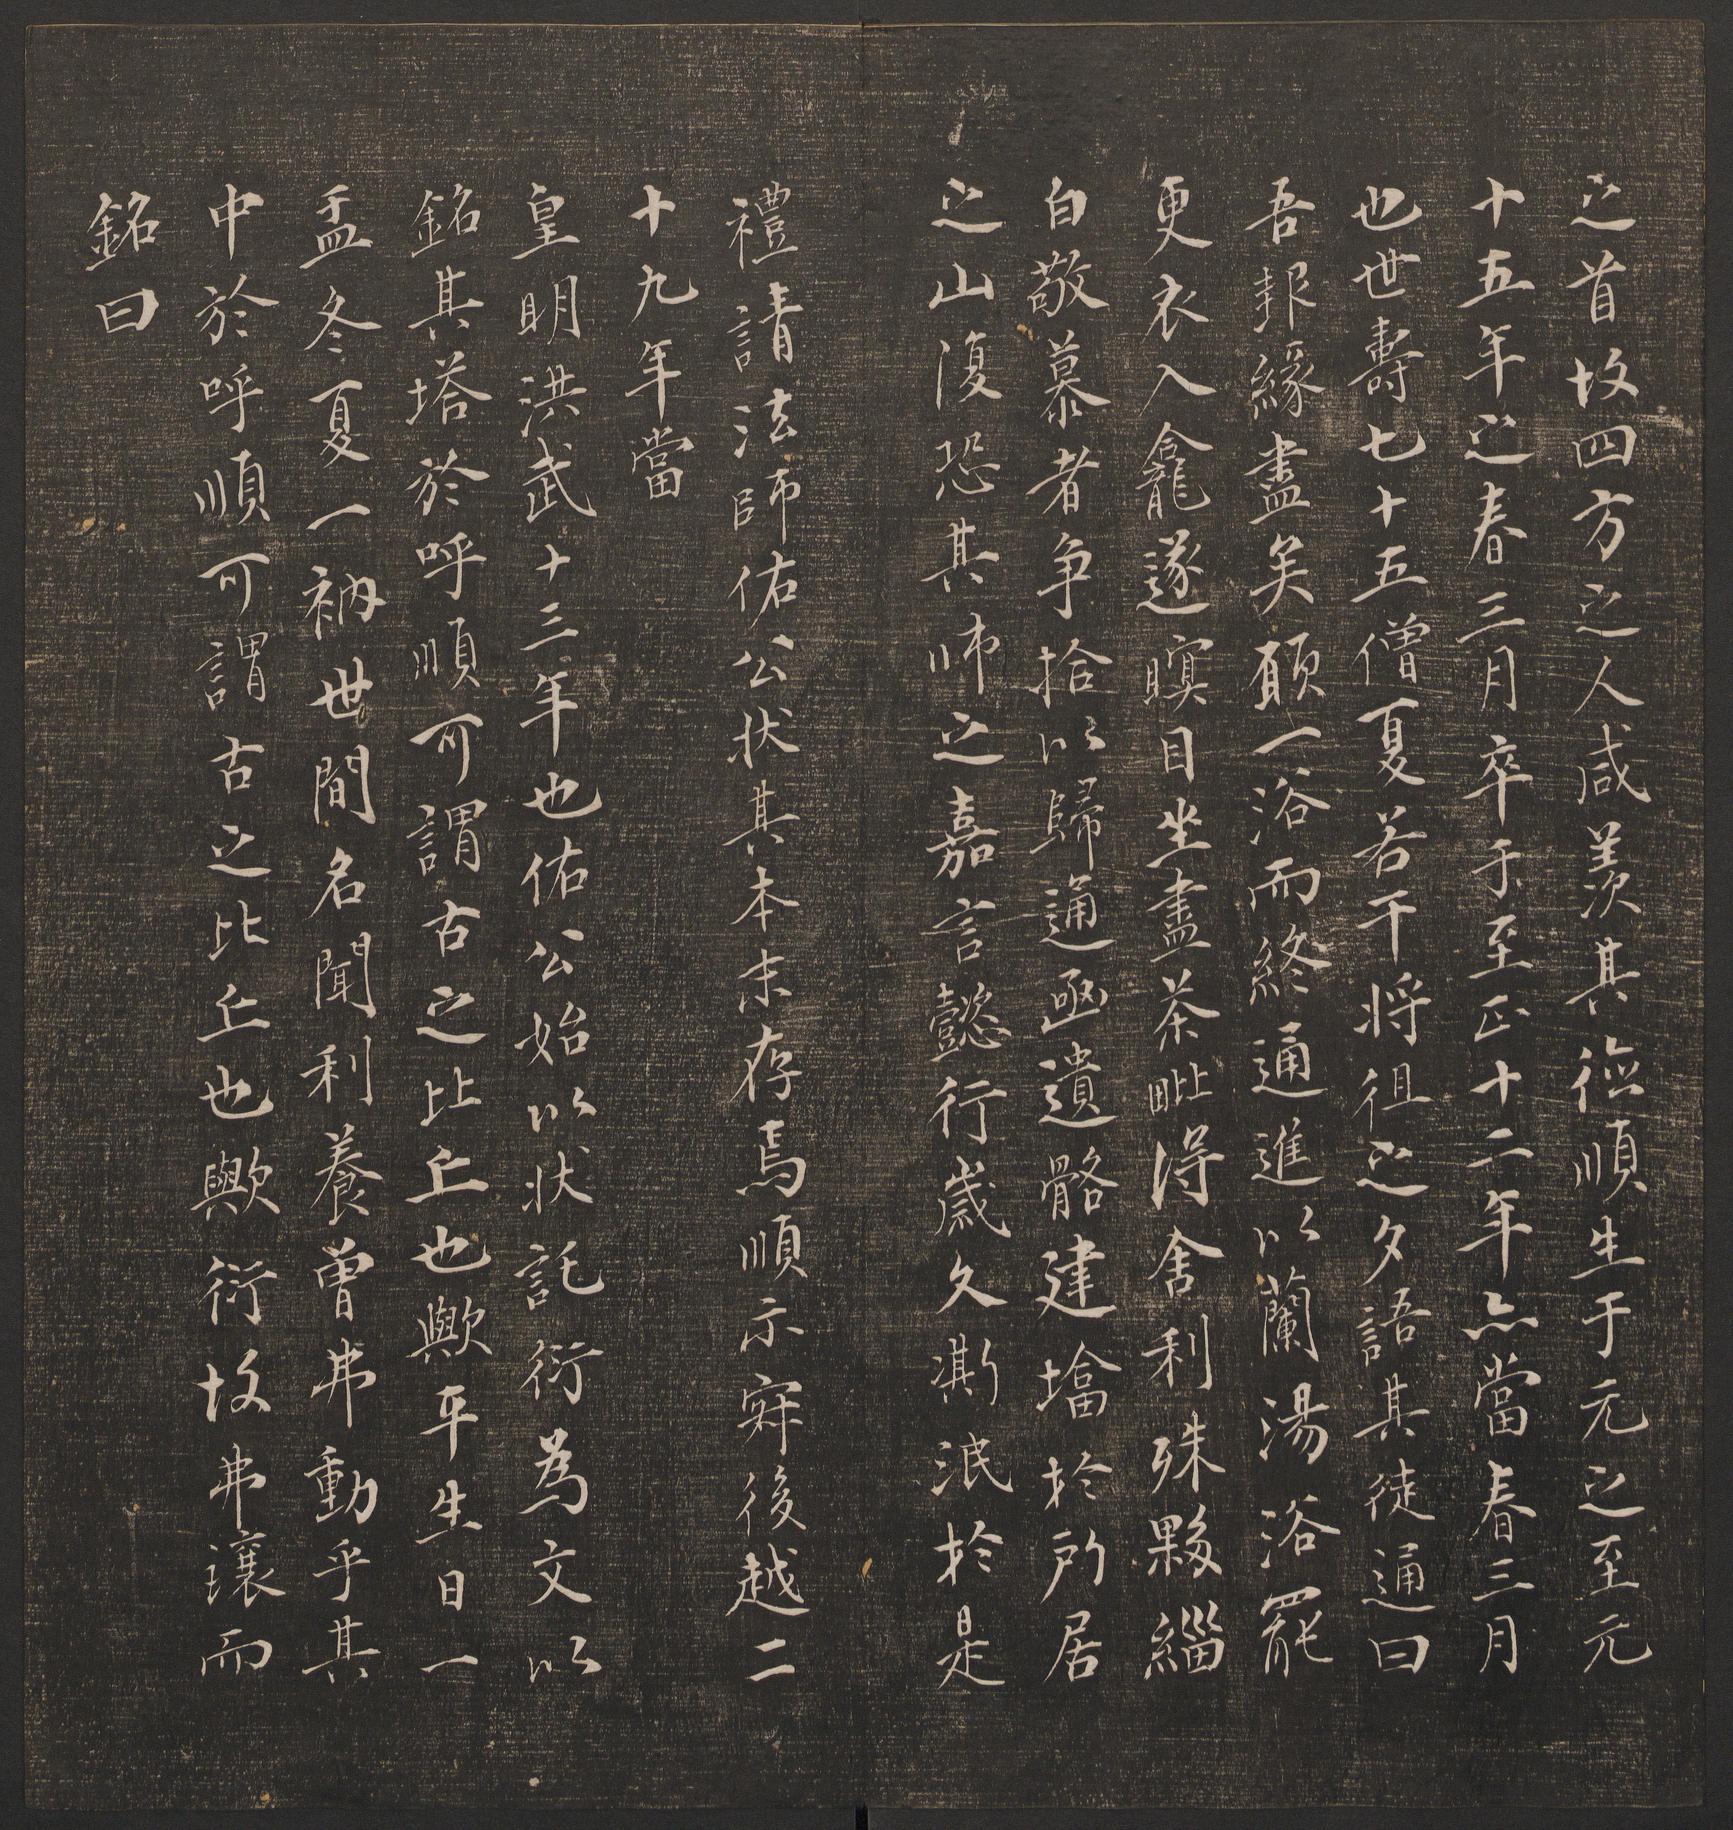 之首故四方之人咸羨其德順生于元之至元
十五年之春三月卒于至正十二年亦當春三月
也世壽七十五僧夏若干將徂之夕語其徒通曰
吾報緣盡矣願一浴而終通進以蘭湯浴罷
更衣入龕遂瞑目坐盡茶毗得舍利殊夥緇
白敬慕者争拾以歸通函遺骼建塔於所居
之山復恐其師之嘉言懿行歲久澌泯於是
禮請法師佑公狀其本末存焉順示寂後越二
十九年當
皇明洪武十三年也佑公始以狀託衍為文以
銘其塔於呼順可謂古之比丘也歟平生日一
盂冬夏一衲世間名聞利養曾弗動乎其
中於呼順可謂古之比丘也歟衍故弗讓而
銘曰